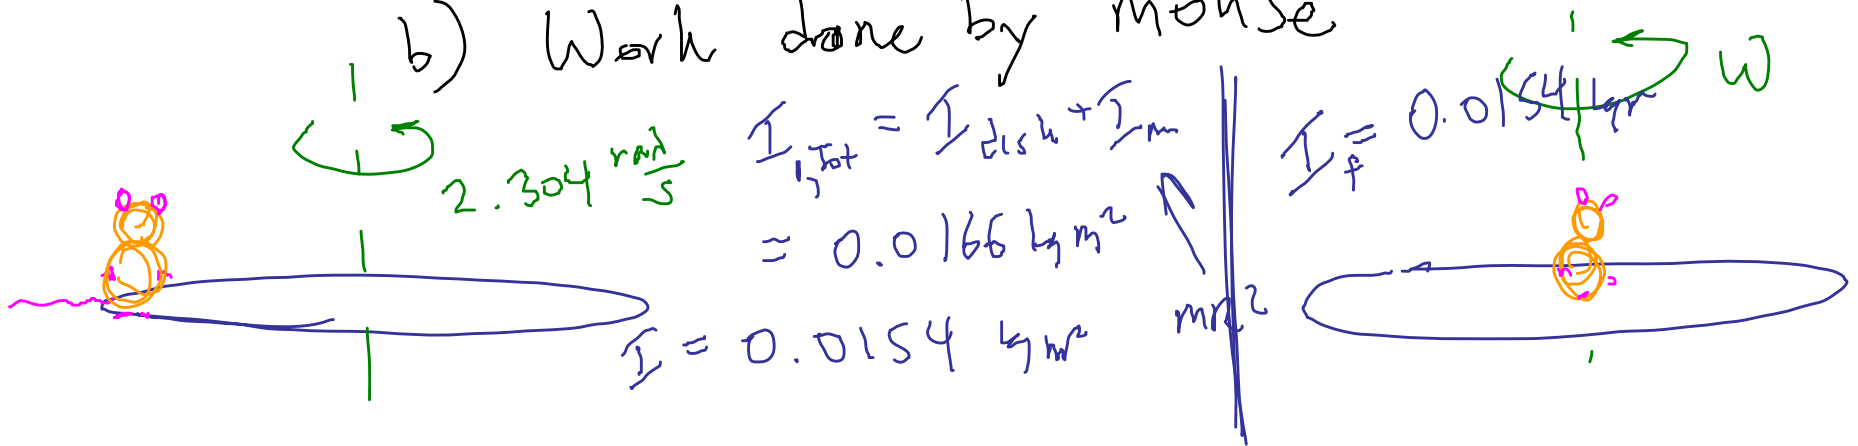 b) Work done by mouse
2.304 rad/s
I₁,Tot = I disk + I m
= 0.0166 kg m²
mr²
I = 0.0154 kg m²
I f = 0.0154 kgm²
ω